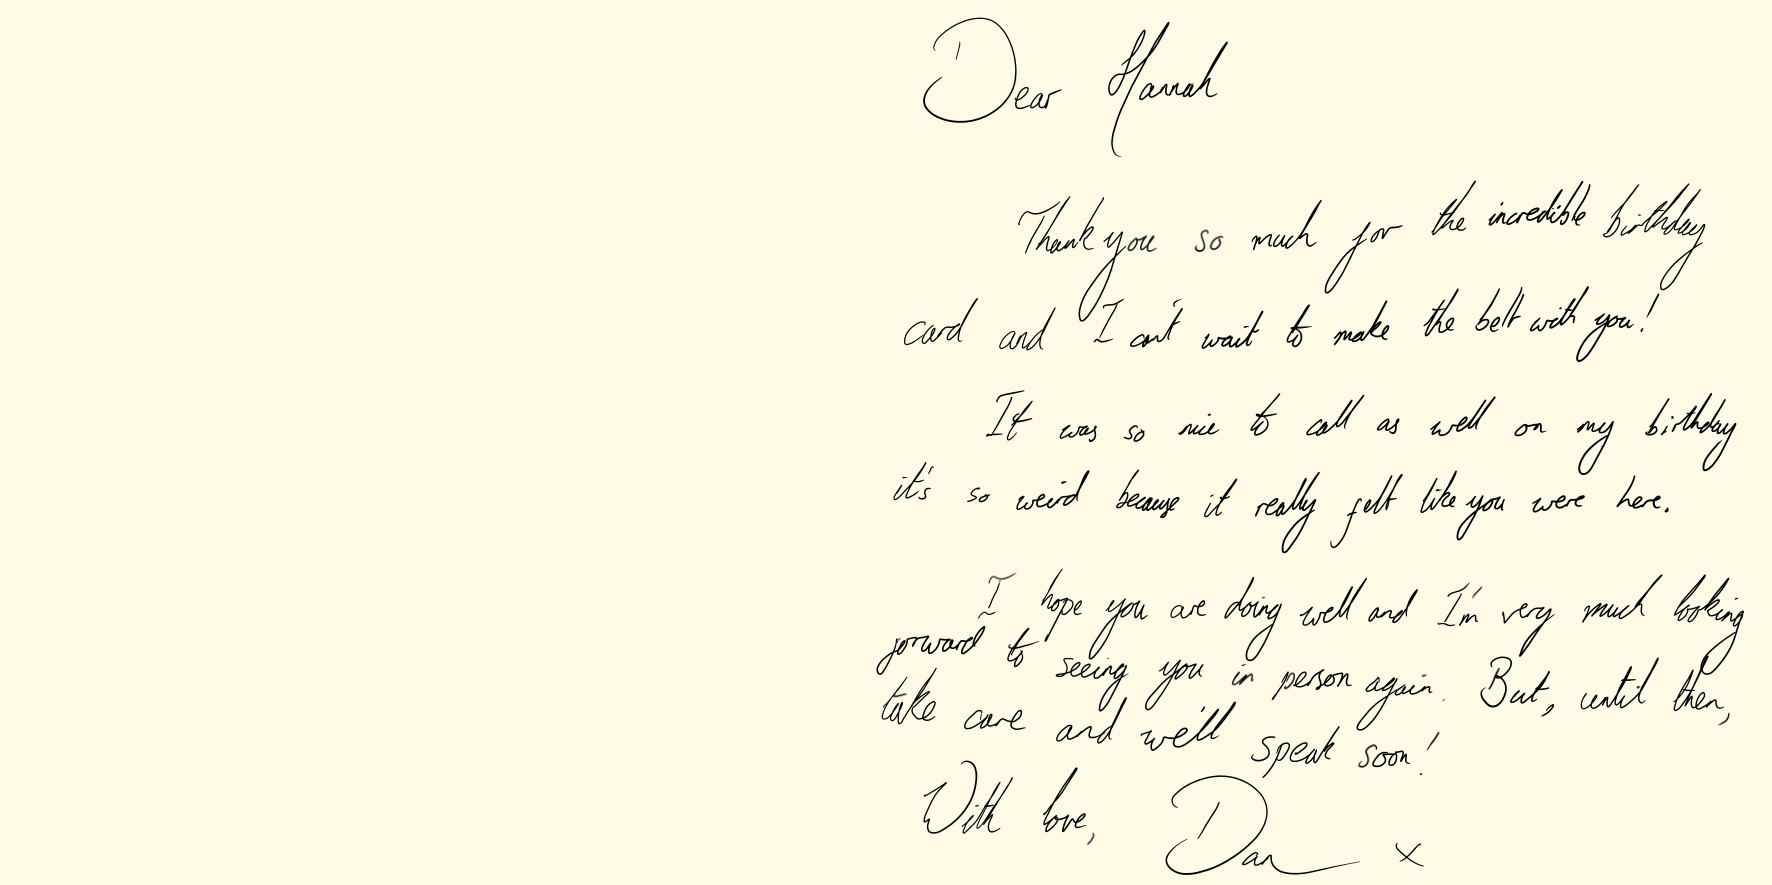 Dear Hannah
Thank you so much for the incredible birthday
card and I can't wait to make the belt with you!
It was so nice to call as well on my birthday
it's so weird because it really felt like you were here.
I hope you are doing well and I'm very much looking
forward to seeing you in person again. But, until then,
take care and we'll speak soon!
With love, Dan x